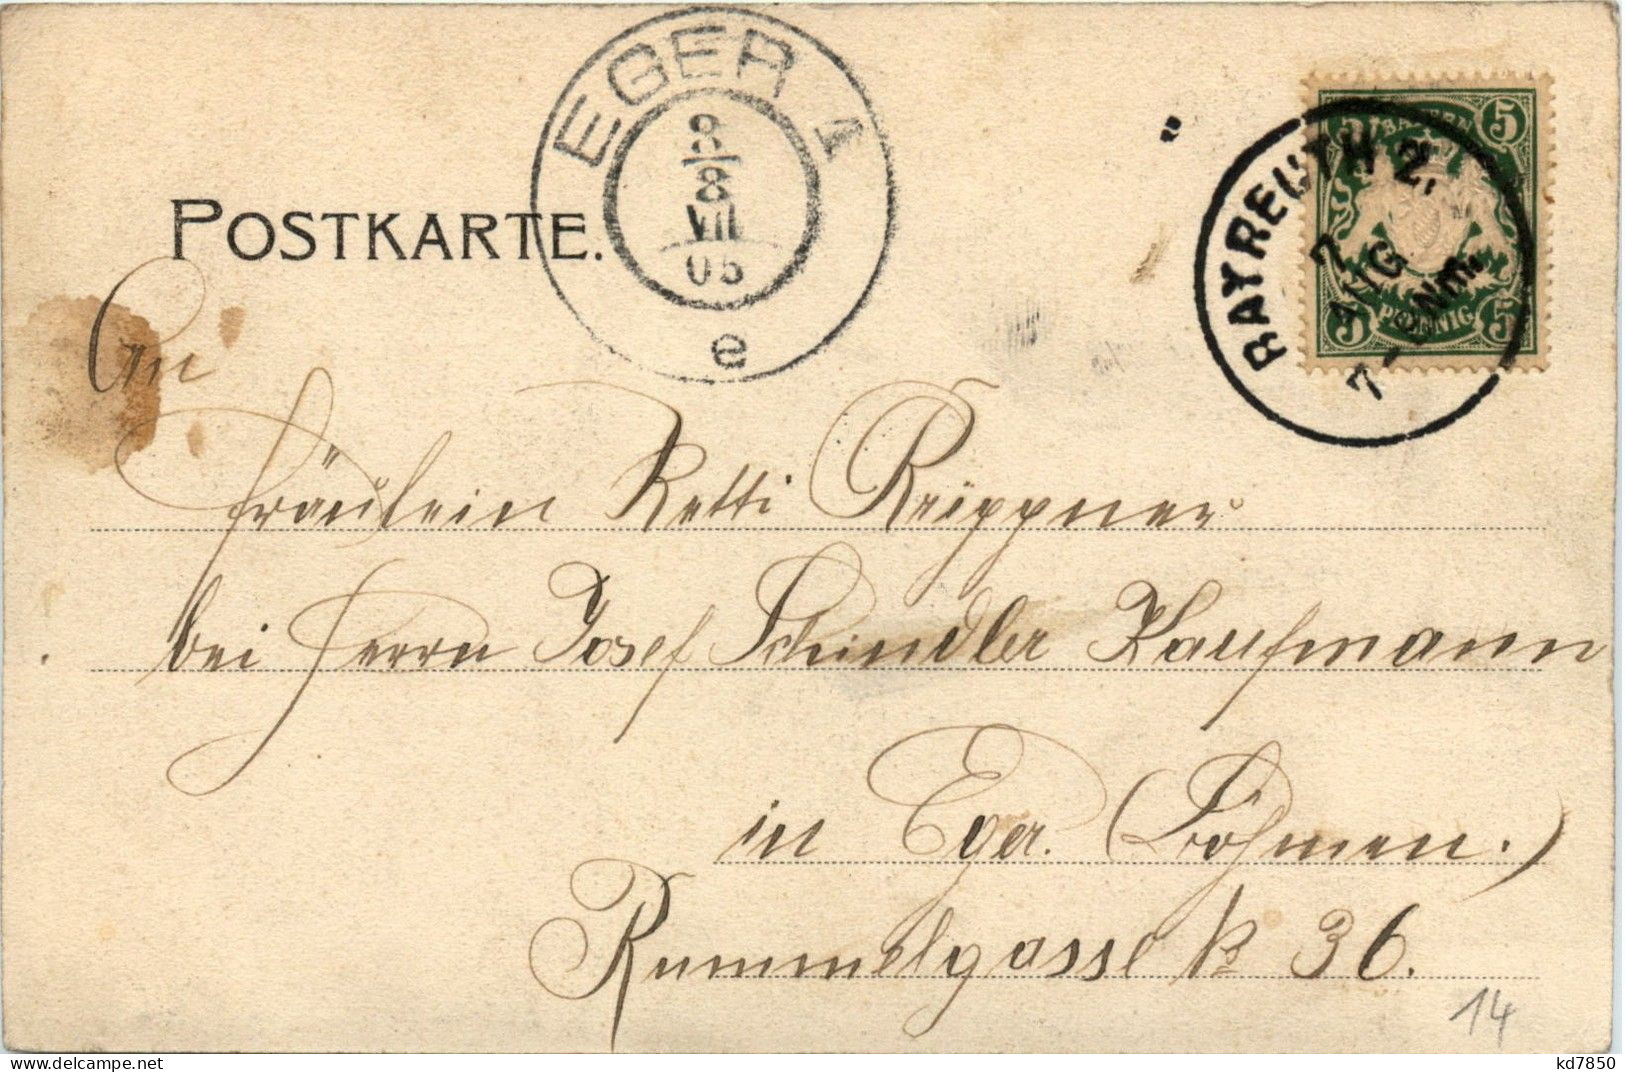 EGER 1
8/8
VIII
05
e
BAYERN
5 5
PFENNIG
5 5
BAYREUTH 2.
7
AUG
7-8Nm.
POSTKARTE.
An
Fräulein Retti Krippner
bei Herrn Josef Schindler Kaufmann
in Eger. (Böhmen.)
Rummelgasse № 36.
14
kd7850